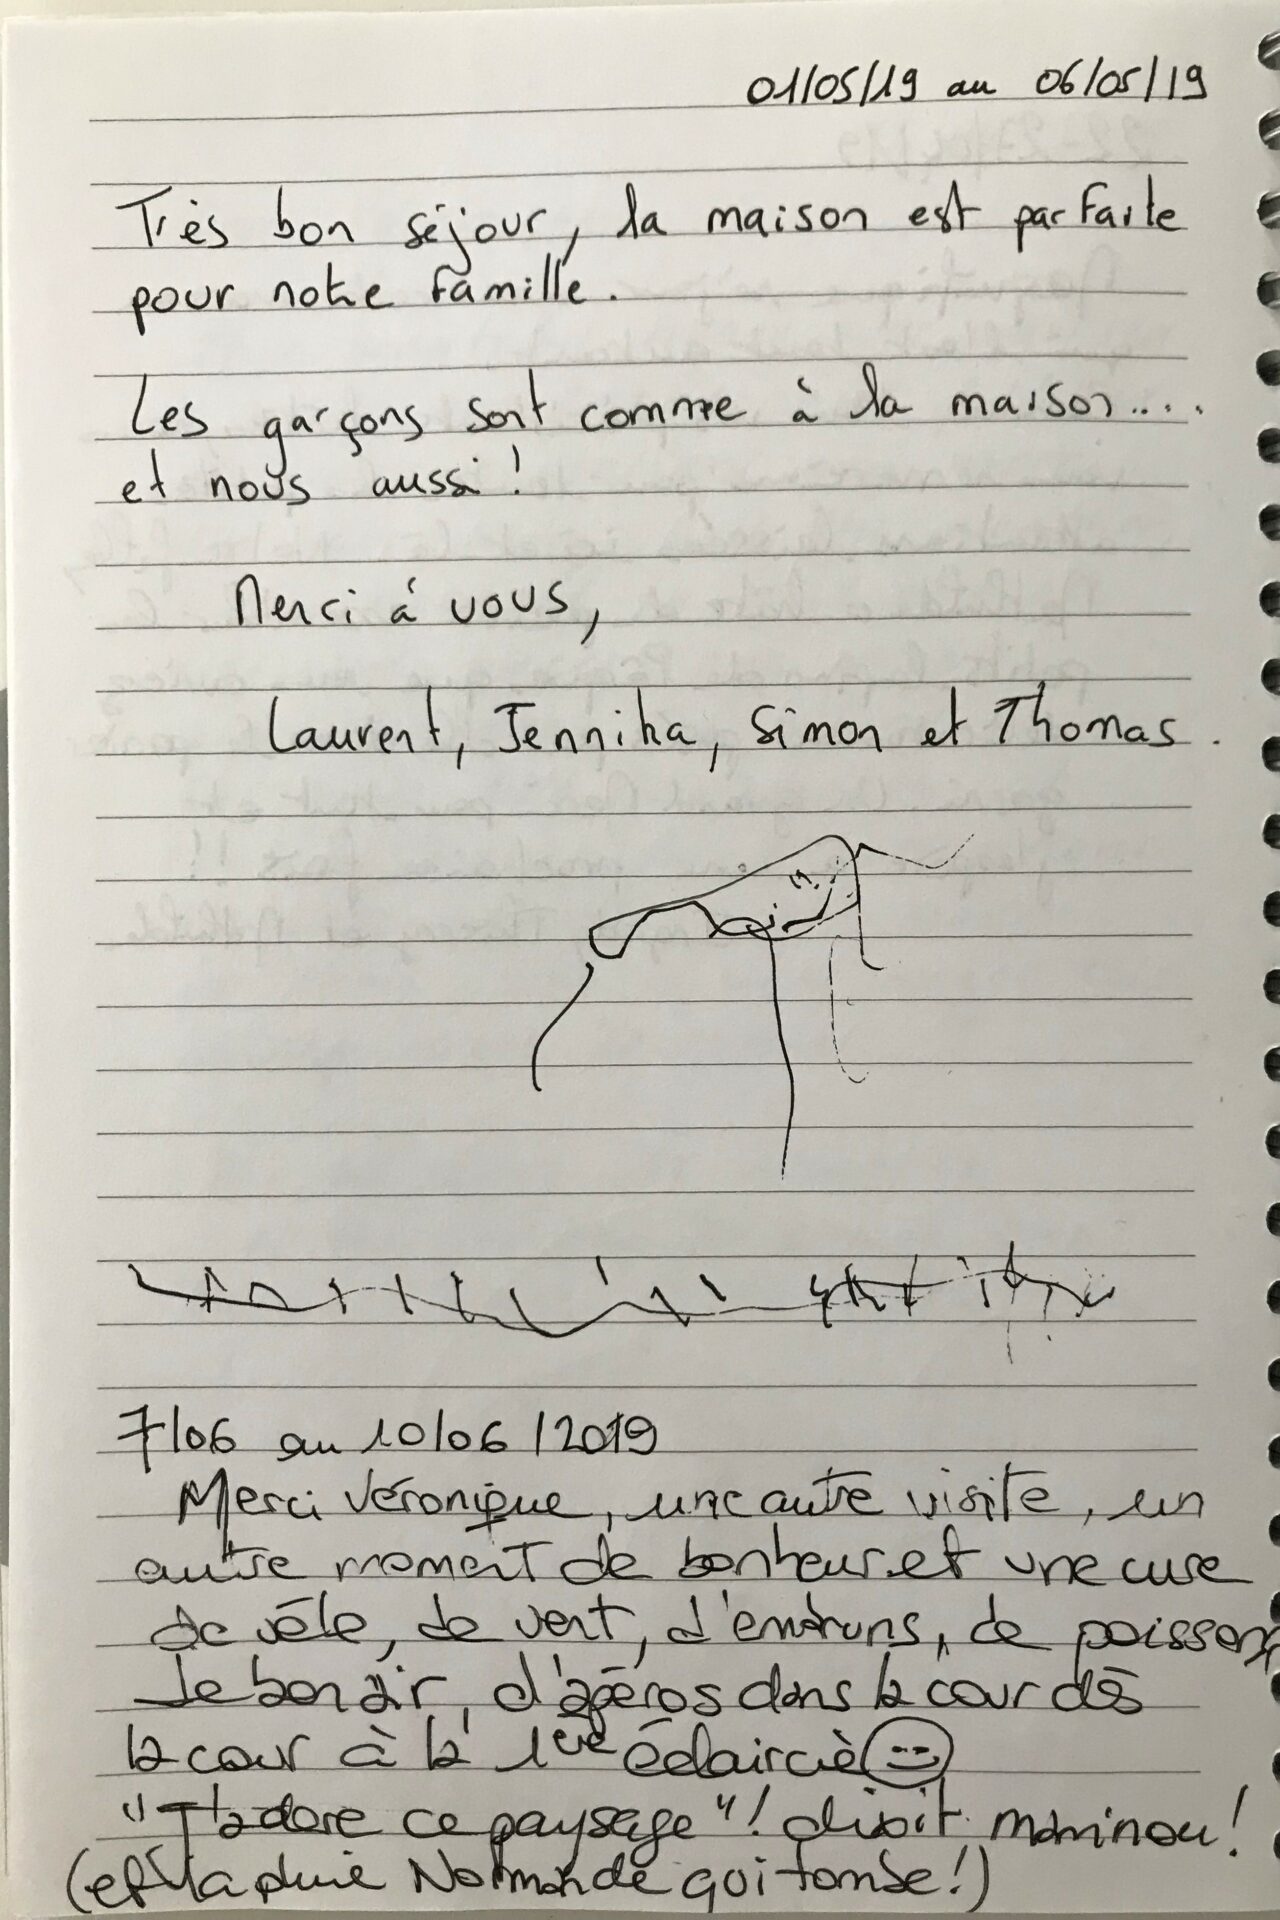 01/05/19 au 06/05/19
Très bon séjour, la maison est parfaite
pour notre famille.
Les garçons sont comme à la maison....
et nous aussi !
Merci à vous,
Laurent, Jennika, Simon et Thomas.
7/06 au 10/06/2019
Merci Véronique, une autre visite, un
autre moment de bonheur et une cure
de vélo, de vert, d'embruns, de poissons
de bon air, d'apéros dans la cour dès
la cour à la 1ère éclaircie
"J'adore ce paysage"! disait maminou!
(et la pluie Normande qui tombe!)